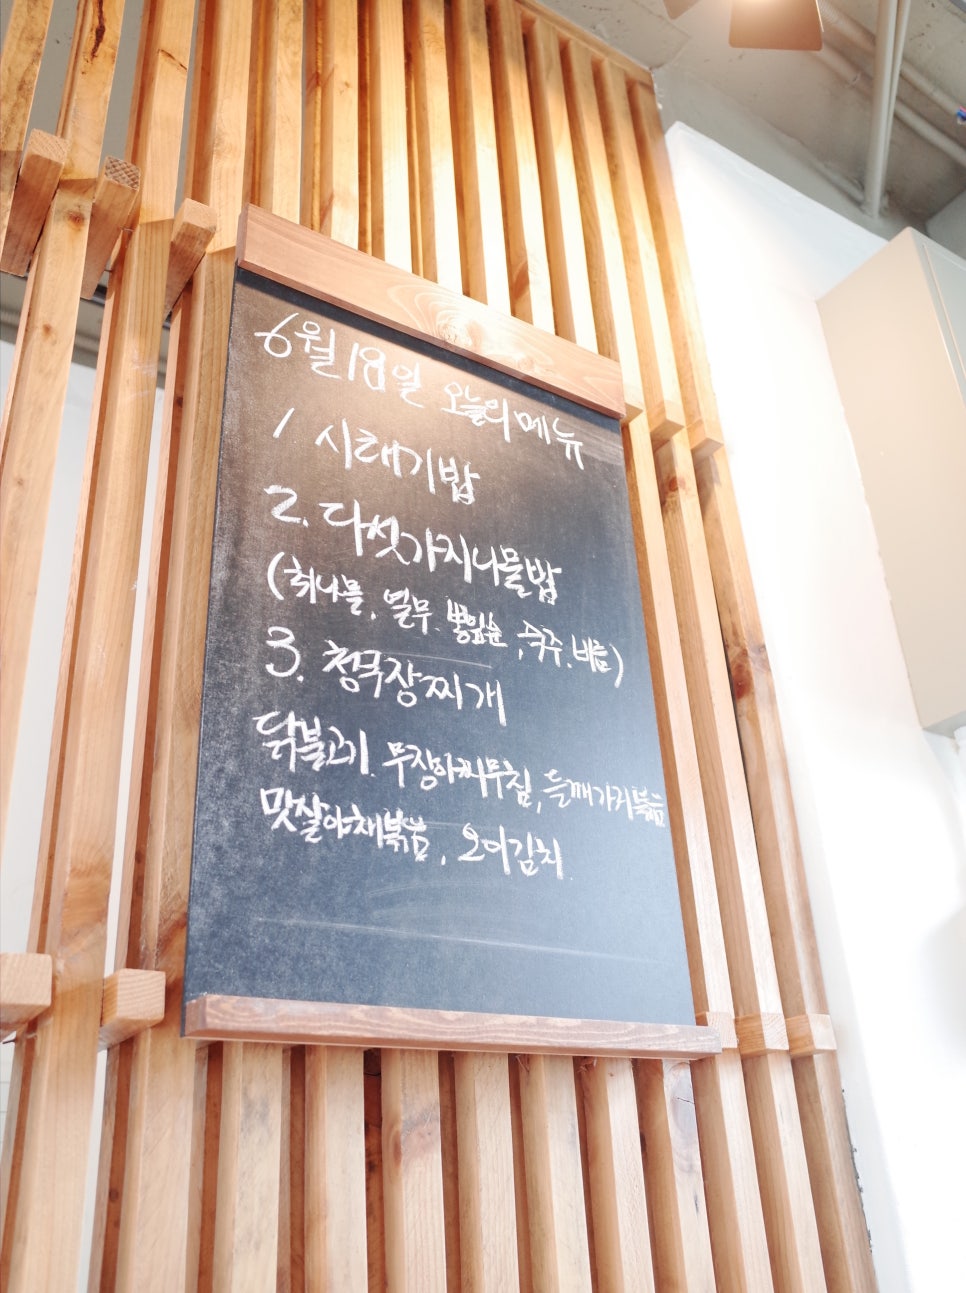 6월 18일 오늘의 메뉴
1 시래기밥
2. 다섯가지나물밥
(취나물, 열무, 뽕잎순, 숙주, 비름)
3. 청국장찌개
닭불고기, 무장아찌무침, 들깨가지볶음
맛살야채볶음, 오이김치.